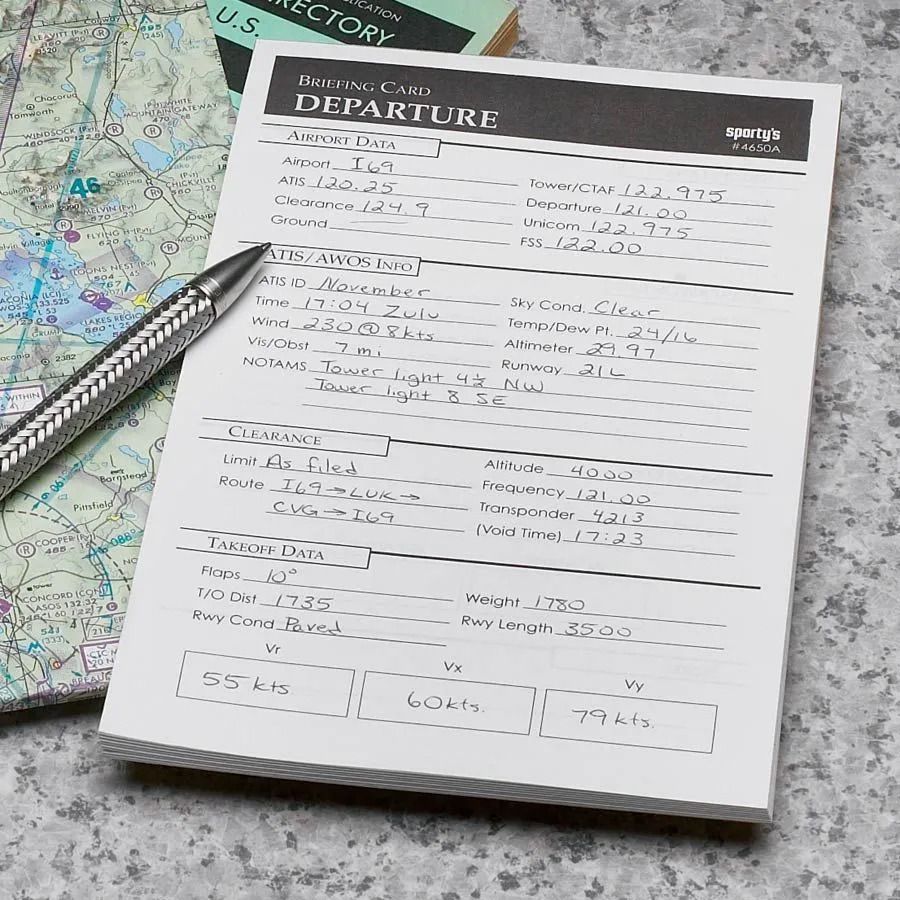 DIRECTORY
U.S.
BRIEFING CARD
DEPARTURE
sporty's
#4650A
AIRPORT DATA
Airport I69
ATIS 120.25
Clearance 124.9
Ground
Tower/CTAF 122.975
Departure 121.00
Unicom 122.975
FSS 122.00
ATIS/AWOS INFO
ATIS ID November
Time 17:04 Zulu
Wind 230@8kts
Vis/Obst 7 mi
Sky Cond. Clear
Temp/Dew Pt. 24/16
Altimeter 29.97
Runway 21L
NOTAMS Tower light 4½ NW
Tower light 8 SE
CLEARANCE
Limit As filed
Route I69→LUK→
CVG→I69
Altitude 4000
Frequency 121.00
Transponder 4213
(Void Time) 17:23
TAKEOFF DATA
Flaps 10°
T/O Dist 1735
Rwy Cond Paved
Weight 1780
Rwy Length 3500
Vr
55 kts
Vx
60kts.
Vy
79 kts.
46
WINDSOCK (Pvt)
MOUNTAIN GATEWAY
FLYING H (Pvt)
620
LAKES REGION
2382
WITHIN
Barnstead
Pittsfield
COOPER (Pvt)
CONCORD (CON)